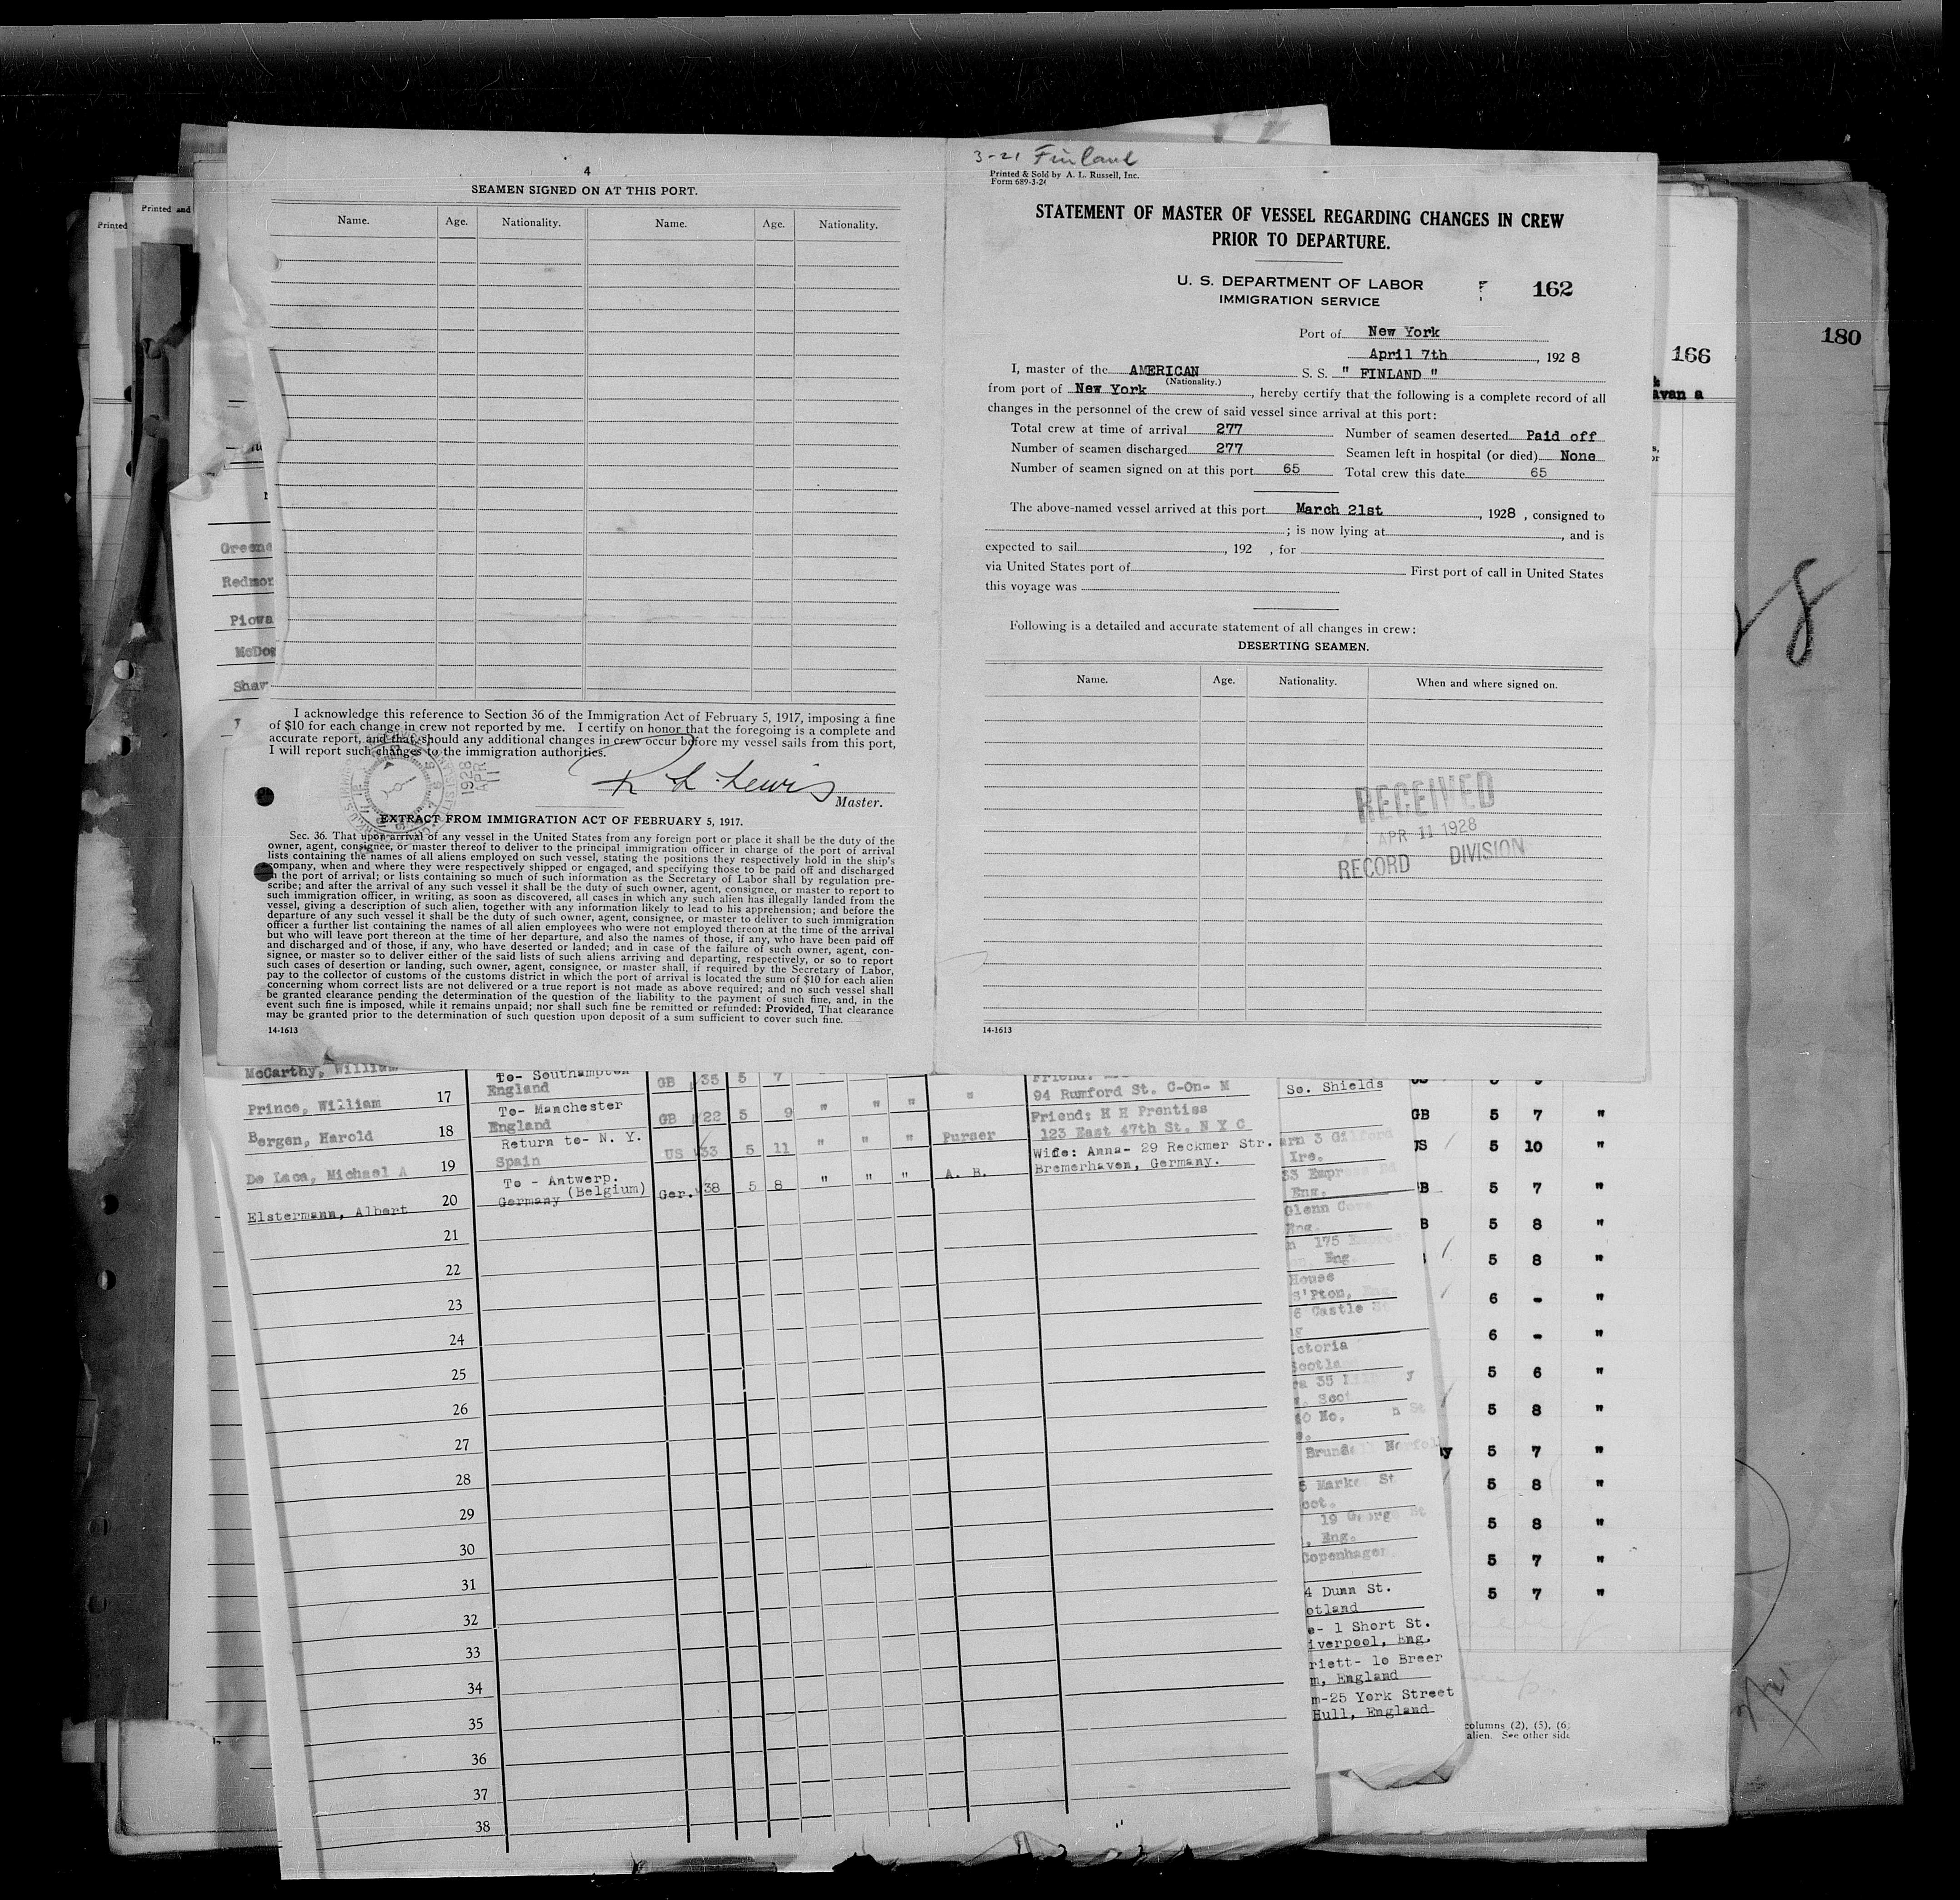 4
SEAMEN SIGNED ON AT THIS PORT.
Name. Age. Nationality. Name. Age. Nationality.
I acknowledge this reference to Section 36 of the Immigration Act of February 5, 1917, imposing a fine
of $10 for each change in crew not reported by me. I certify on honor that the foregoing is a complete and
accurate report, and that, should any additional changes in crew occur before my vessel sails from this port,
I will report such changes to the immigration authorities.
1928
APR
11
R L Lewis
Master.
EXTRACT FROM IMMIGRATION ACT OF FEBRUARY 5, 1917.
Sec. 36. That upon arrival of any vessel in the United States from any foreign port or place it shall be the duty of the
owner, agent, consignee, or master thereof to deliver to the principal immigration officer in charge of the port of arrival
lists containing the names of all aliens employed on such vessel, stating the positions they respectively hold in the ship's
company, when and where they were respectively shipped or engaged, and specifying those to be paid off and discharged
in the port of arrival; or lists containing so much of such information as the Secretary of Labor shall by regulation pre-
scribe; and after the arrival of any such vessel it shall be the duty of such owner, agent, consignee, or master to report to
such immigration officer, in writing, as soon as discovered, all cases in which any such alien has illegally landed from the
vessel, giving a description of such alien, together with any information likely to lead to his apprehension; and before the
departure of any such vessel it shall be the duty of such owner, agent, consignee, or master to deliver to such immigration
officer a further list containing the names of all alien employees who were not employed thereon at the time of the arrival
but who will leave port thereon at the time of her departure, and also the names of those, if any, who have been paid off
and discharged and of those, if any, who have deserted or landed; and in case of the failure of such owner, agent, con-
signee, or master so to deliver either of the said lists of such aliens arriving and departing, respectively, or so to report
such cases of desertion or landing, such owner, agent, consignee, or master shall, if required by the Secretary of Labor,
pay to the collector of customs of the customs district in which the port of arrival is located the sum of $10 for each alien
concerning whom correct lists are not delivered or a true report is not made as above required; and no such vessel shall
be granted clearance pending the determination of the question of the liability to the payment of such fine, and, in the
event such fine is imposed, while it remains unpaid; nor shall such fine be remitted or refunded: Provided, That clearance
may be granted prior to the determination of such question upon deposit of a sum sufficient to cover such fine.
14-1613
3-21 Finland
Printed & Sold by A. L. Russell, Inc.
Form 689-3-26
STATEMENT OF MASTER OF VESSEL REGARDING CHANGES IN CREW
PRIOR TO DEPARTURE.
U. S. DEPARTMENT OF LABOR
IMMIGRATION SERVICE
162
Port of New York
April 7th, 1928
I, master of the AMERICAN S. S. " FINLAND "
(Nationality.)
from port of New York, hereby certify that the following is a complete record of all
changes in the personnel of the crew of said vessel since arrival at this port:
Total crew at time of arrival 277 Number of seamen deserted Paid off
Number of seamen discharged 277 Seamen left in hospital (or died) None
Number of seamen signed on at this port 65 Total crew this date 65
The above-named vessel arrived at this port March 21st, 1928, consigned to
; is now lying at , and is
expected to sail , 192 , for
via United States port of First port of call in United States
this voyage was
Following is a detailed and accurate statement of all changes in crew:
DESERTING SEAMEN.
Name. Age. Nationality. When and where signed on.
RECEIVED
APR 11 1928
RECORD DIVISION
14-1613
Printed
Printed and
Greene
Redmon
Piowa
McDow
Shaw
166
180
avan a
McCarthy, William 17 To- Southampton England GB 35 5 7 " 94 Rumford St. C-On- M
Prince, William 18 To- Manchester England GB 22 5 9 " " " " Friend: H H Prentiss 123 East 47th St. N Y C
Bergen, Harold 19 Return to- N. Y. US 33 5 11 " " " Purser Wife: Anna- 29 Reckmer Str. Bremerhaven, Germany.
De Laca, Michael A 20 Spain To - Antwerp. (Belgium) Germany Ger. 38 5 8 " " " A. B.
Elstermann, Albert
21
22
23
24
25
26
27
28
29
30
31
32
33
34
35
36
37
38
So. Shields
arn 3 Gilford
Ire.
33 Empress Rd
Eng.
Glenn Cove
Eng.
n 175 Empress
Eng.
House
S'Pton, Eng.
6 Castle St
ictoria
Scotla
ra 35
, Scot
10 No, n St
Brundell Norfolk
5 Market St
cot.
19 George St
, Eng.
Copenhagen
4 Dunn St.
otland
e- 1 Short St.
iverpool, Eng.
riett- 10 Breer
m, England
m-25 York Street
Hull, England
GB 5 7 "
US 5 10 "
B 5 7 "
B 5 8 "
5 8 "
6 - "
6 - "
5 6 "
5 8 "
ay 5 7 "
5 8 "
5 8 "
5 7 "
5 7 "
columns (2), (5), (6)
alien. See other side